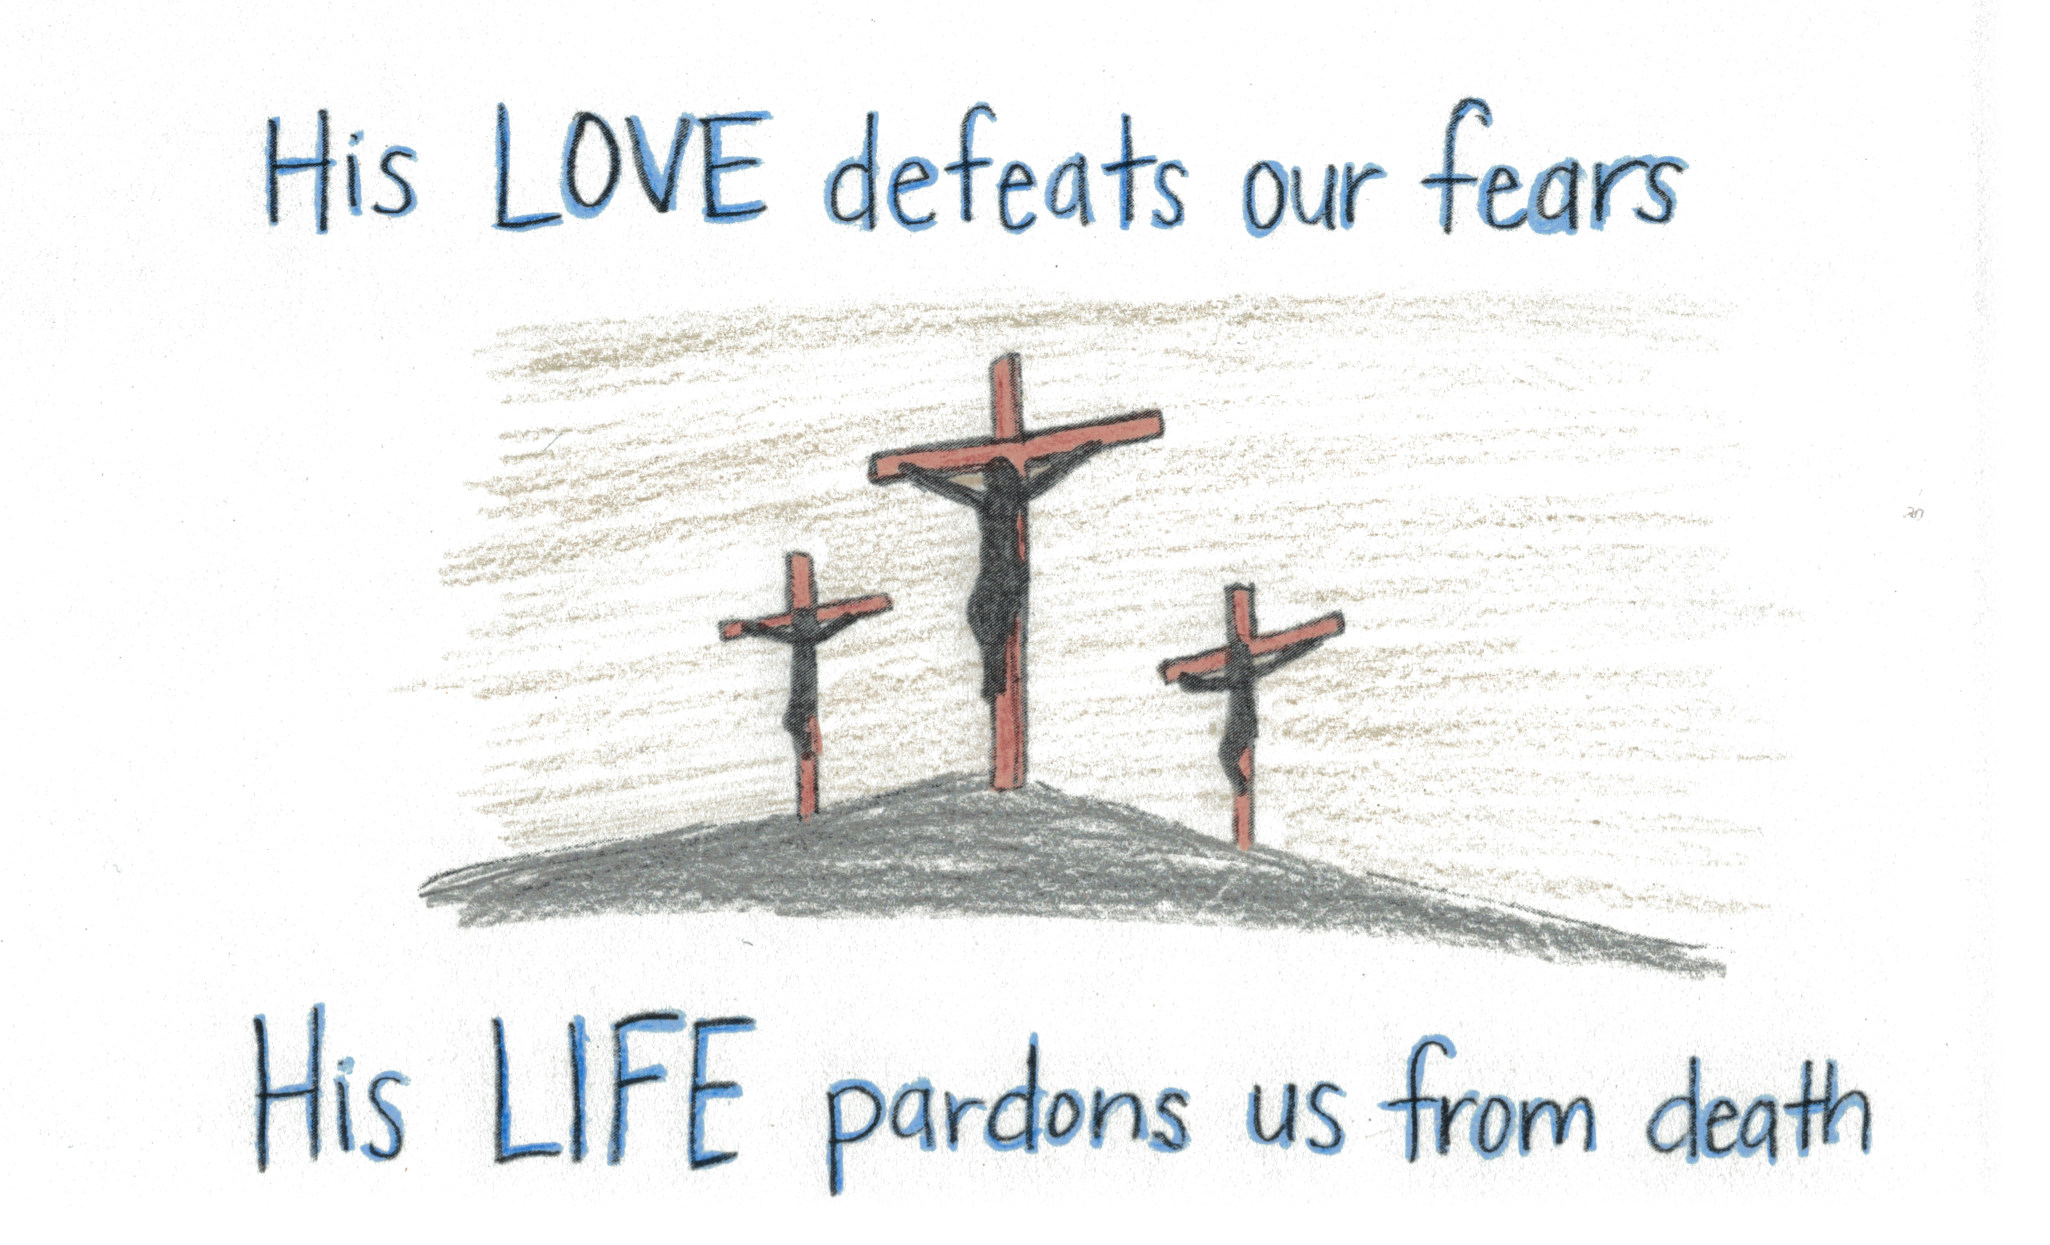 His LOVE defeats our fears
His LIFE pardons us from death